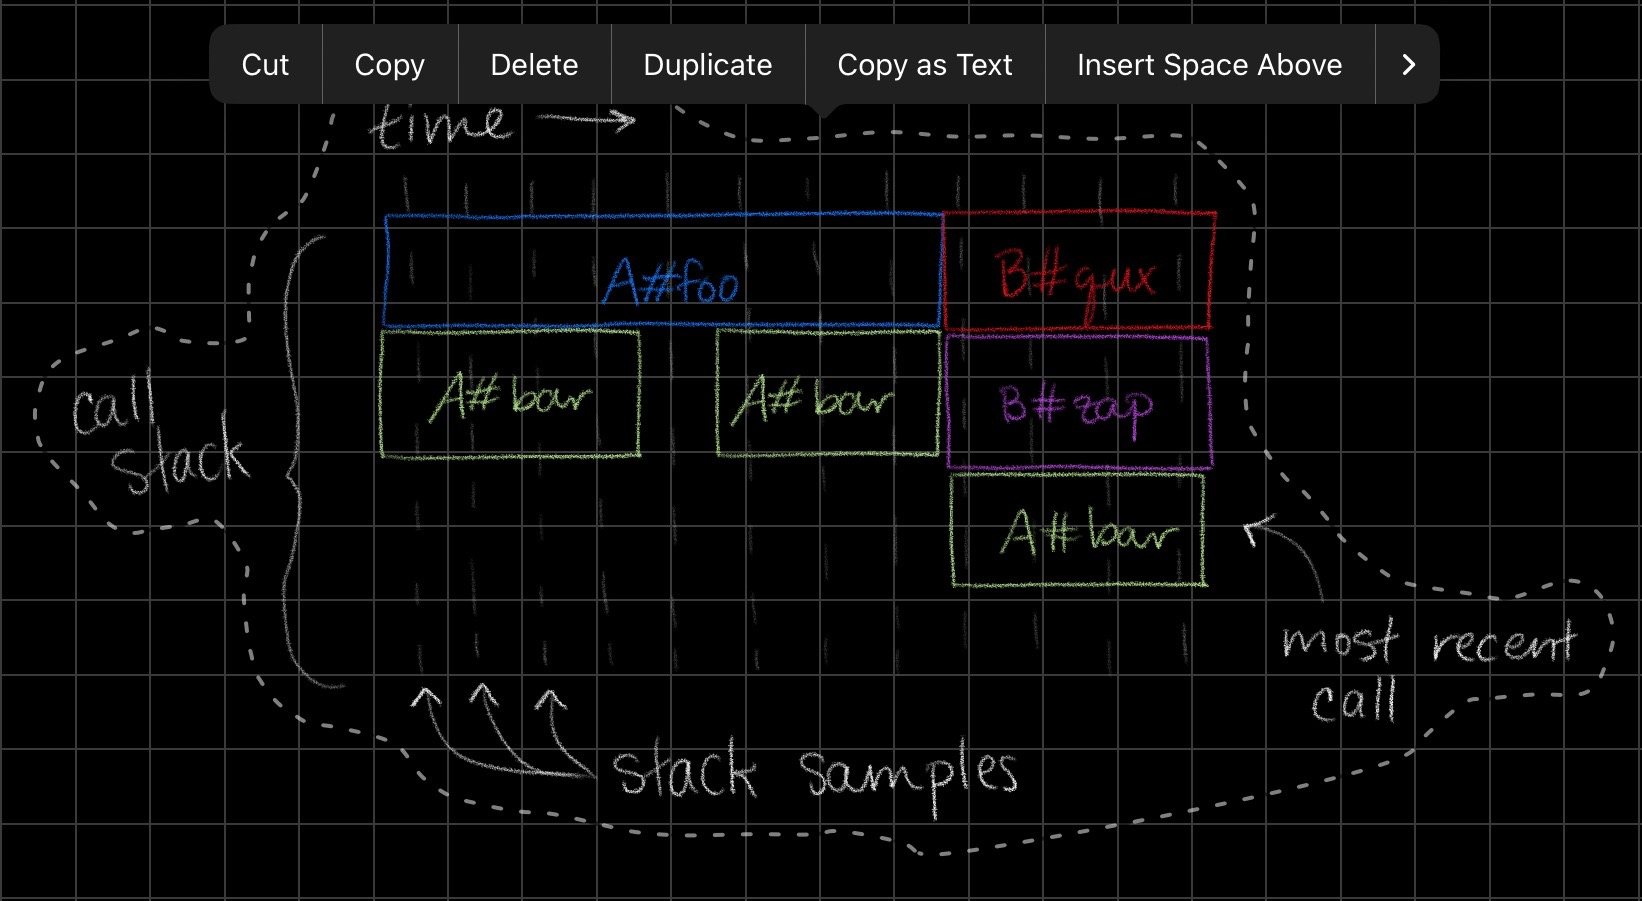 Cut Copy Delete Duplicate Copy as Text Insert Space Above
time
A#foo B#qux
A#bar A#bar B#zap
call
stack
A#bar
most recent
call
stack samples